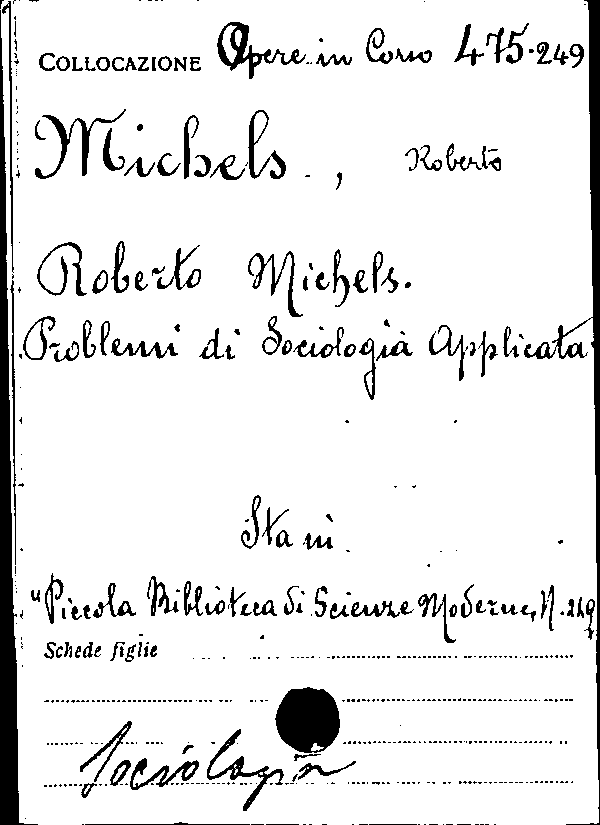 COLLOCAZIONE Opere in Corso 475-249
Michels, Roberto
Roberto Michels.
Problemi di Sociologia Applicata
Sta in
"Piccola Biblioteca di Scienze Moderne, N. 249
Schede figlie
Sociologia